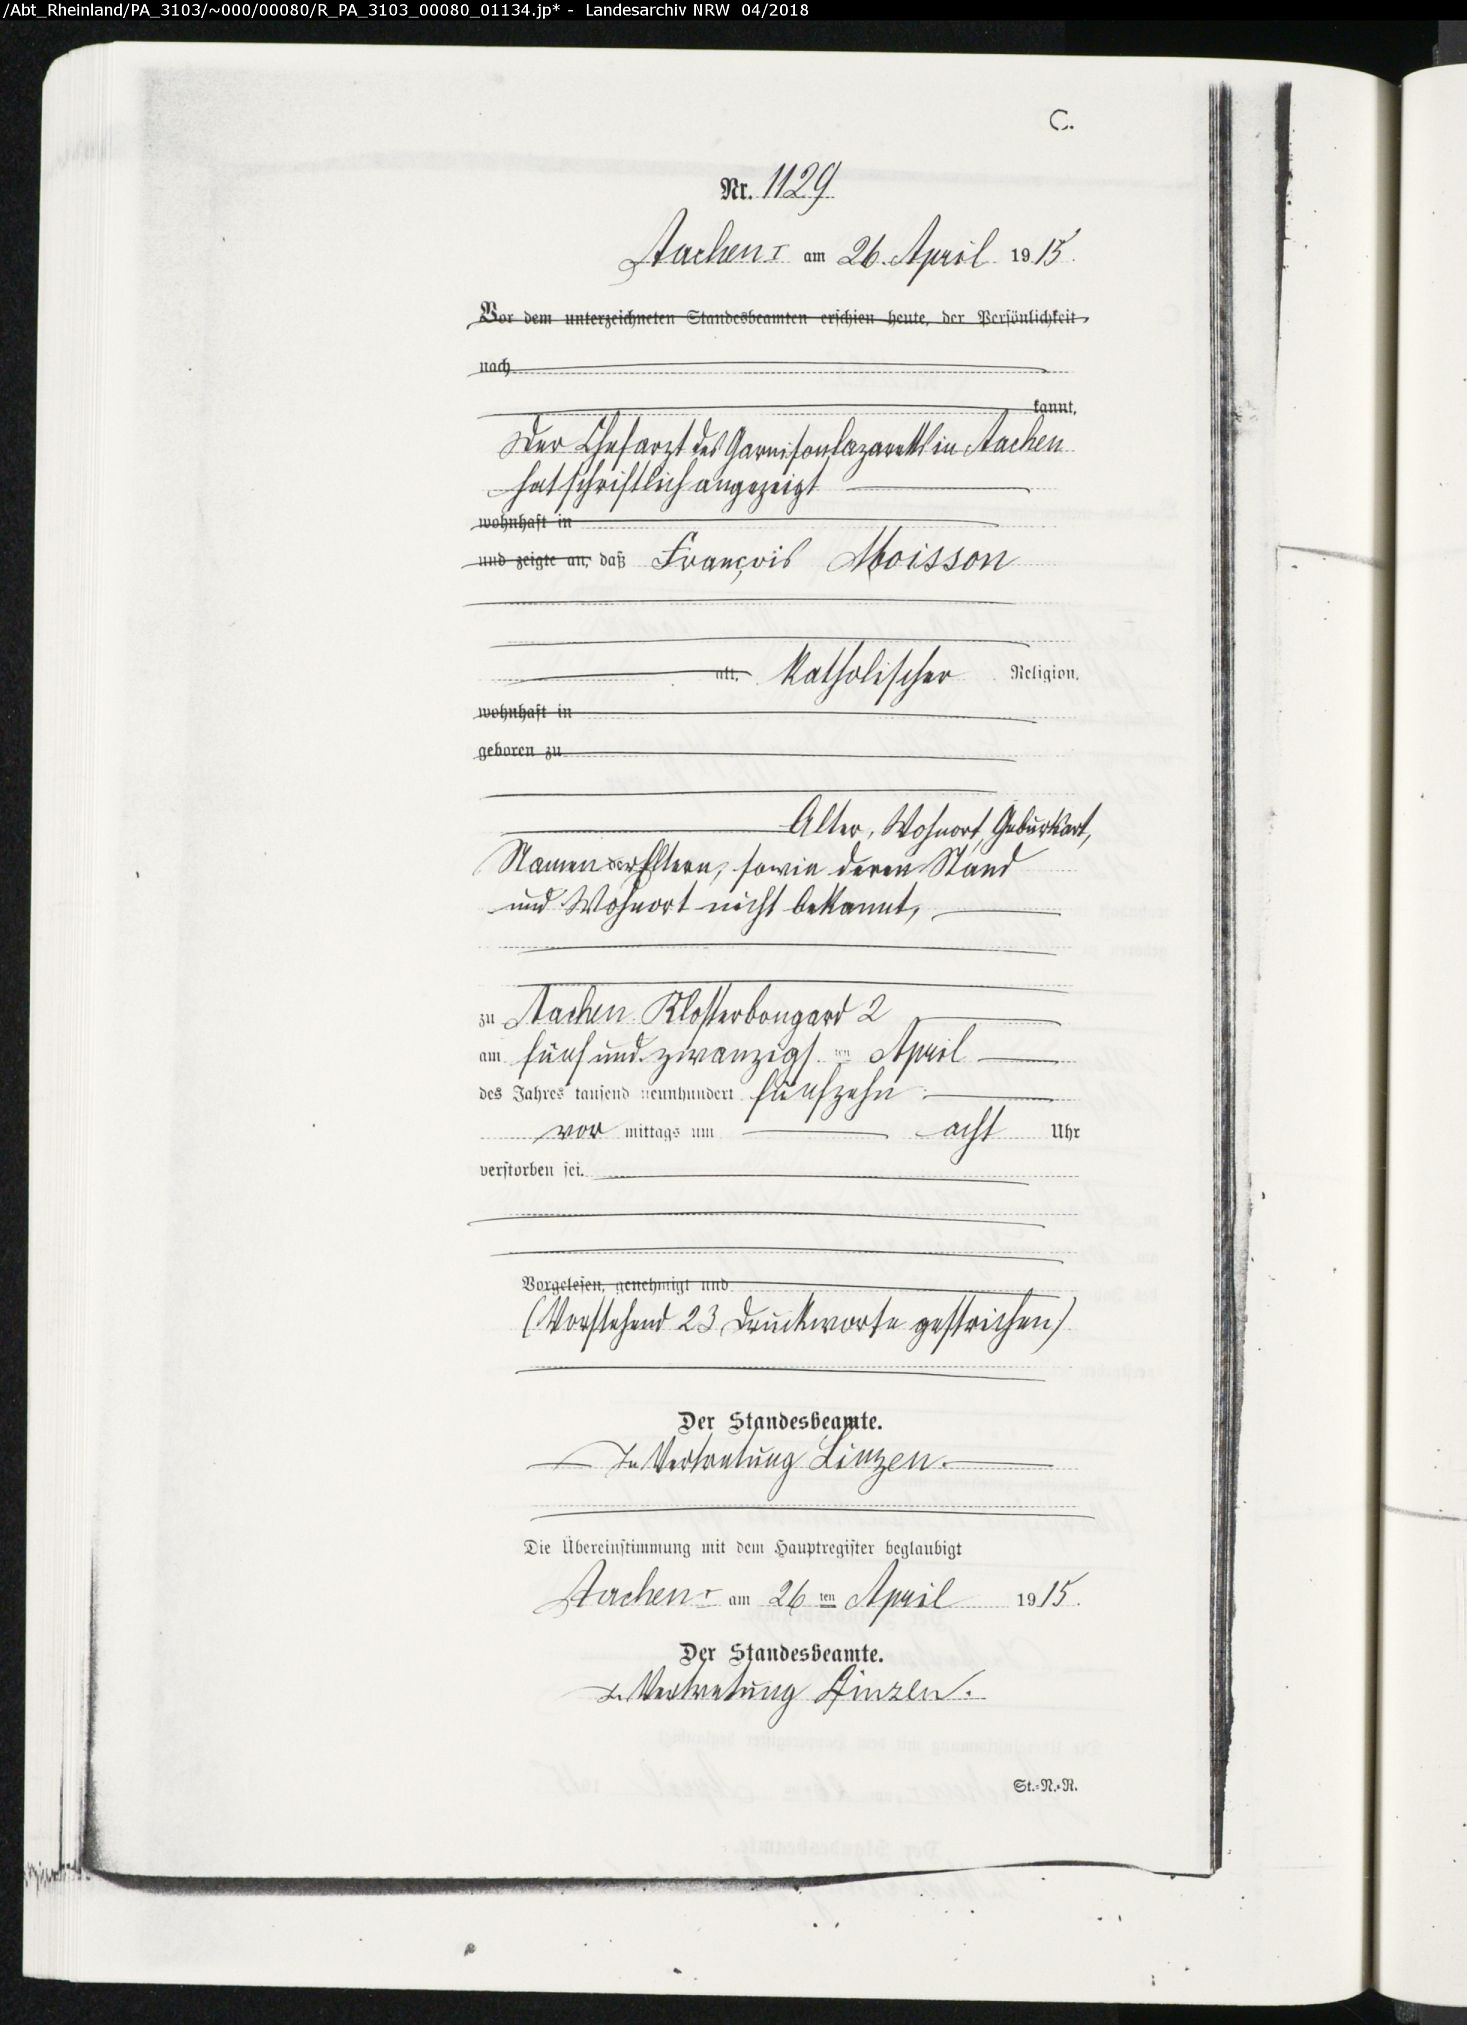 /Abt_Rheinland/PA_3103/~000/00080/R_PA_3103_00080_01134.jp* - Landesarchiv NRW 04/2018
C.
Nr. 1129
Aachen I am 26. April 1915.
Vor dem unterzeichneten Standesbeamten erschien heute, der Persönlichkeit
nach
kannt,
Der Chefarzt des Garnisonlazaretts in Aachen
hat schriftlich angezeigt
wohnhaft in
und zeigte an, daß François Moisson
alt, katholischer Religion,
wohnhaft in
geboren zu
Alter, Wohnort, Geburtsort,
Namen der Eltern, sowie deren Stand
und Wohnort nicht bekannt,
zu Aachen Klosterbongard 2
am fünf und zwanzigsten April
des Jahres tausend neunhundert fünfzehn
vor mittags um acht Uhr
verstorben sei.
Vorgelesen, genehmigt und
(Vorstehend 23 Druckworte gestrichen)
Der Standesbeamte.
In Vertretung Linzen.
Die Übereinstimmung mit dem Hauptregister beglaubigt
Aachen I am 26 ten April 1915.
Der Standesbeamte.
In Vertretung Linzen.
St.=R.=R.